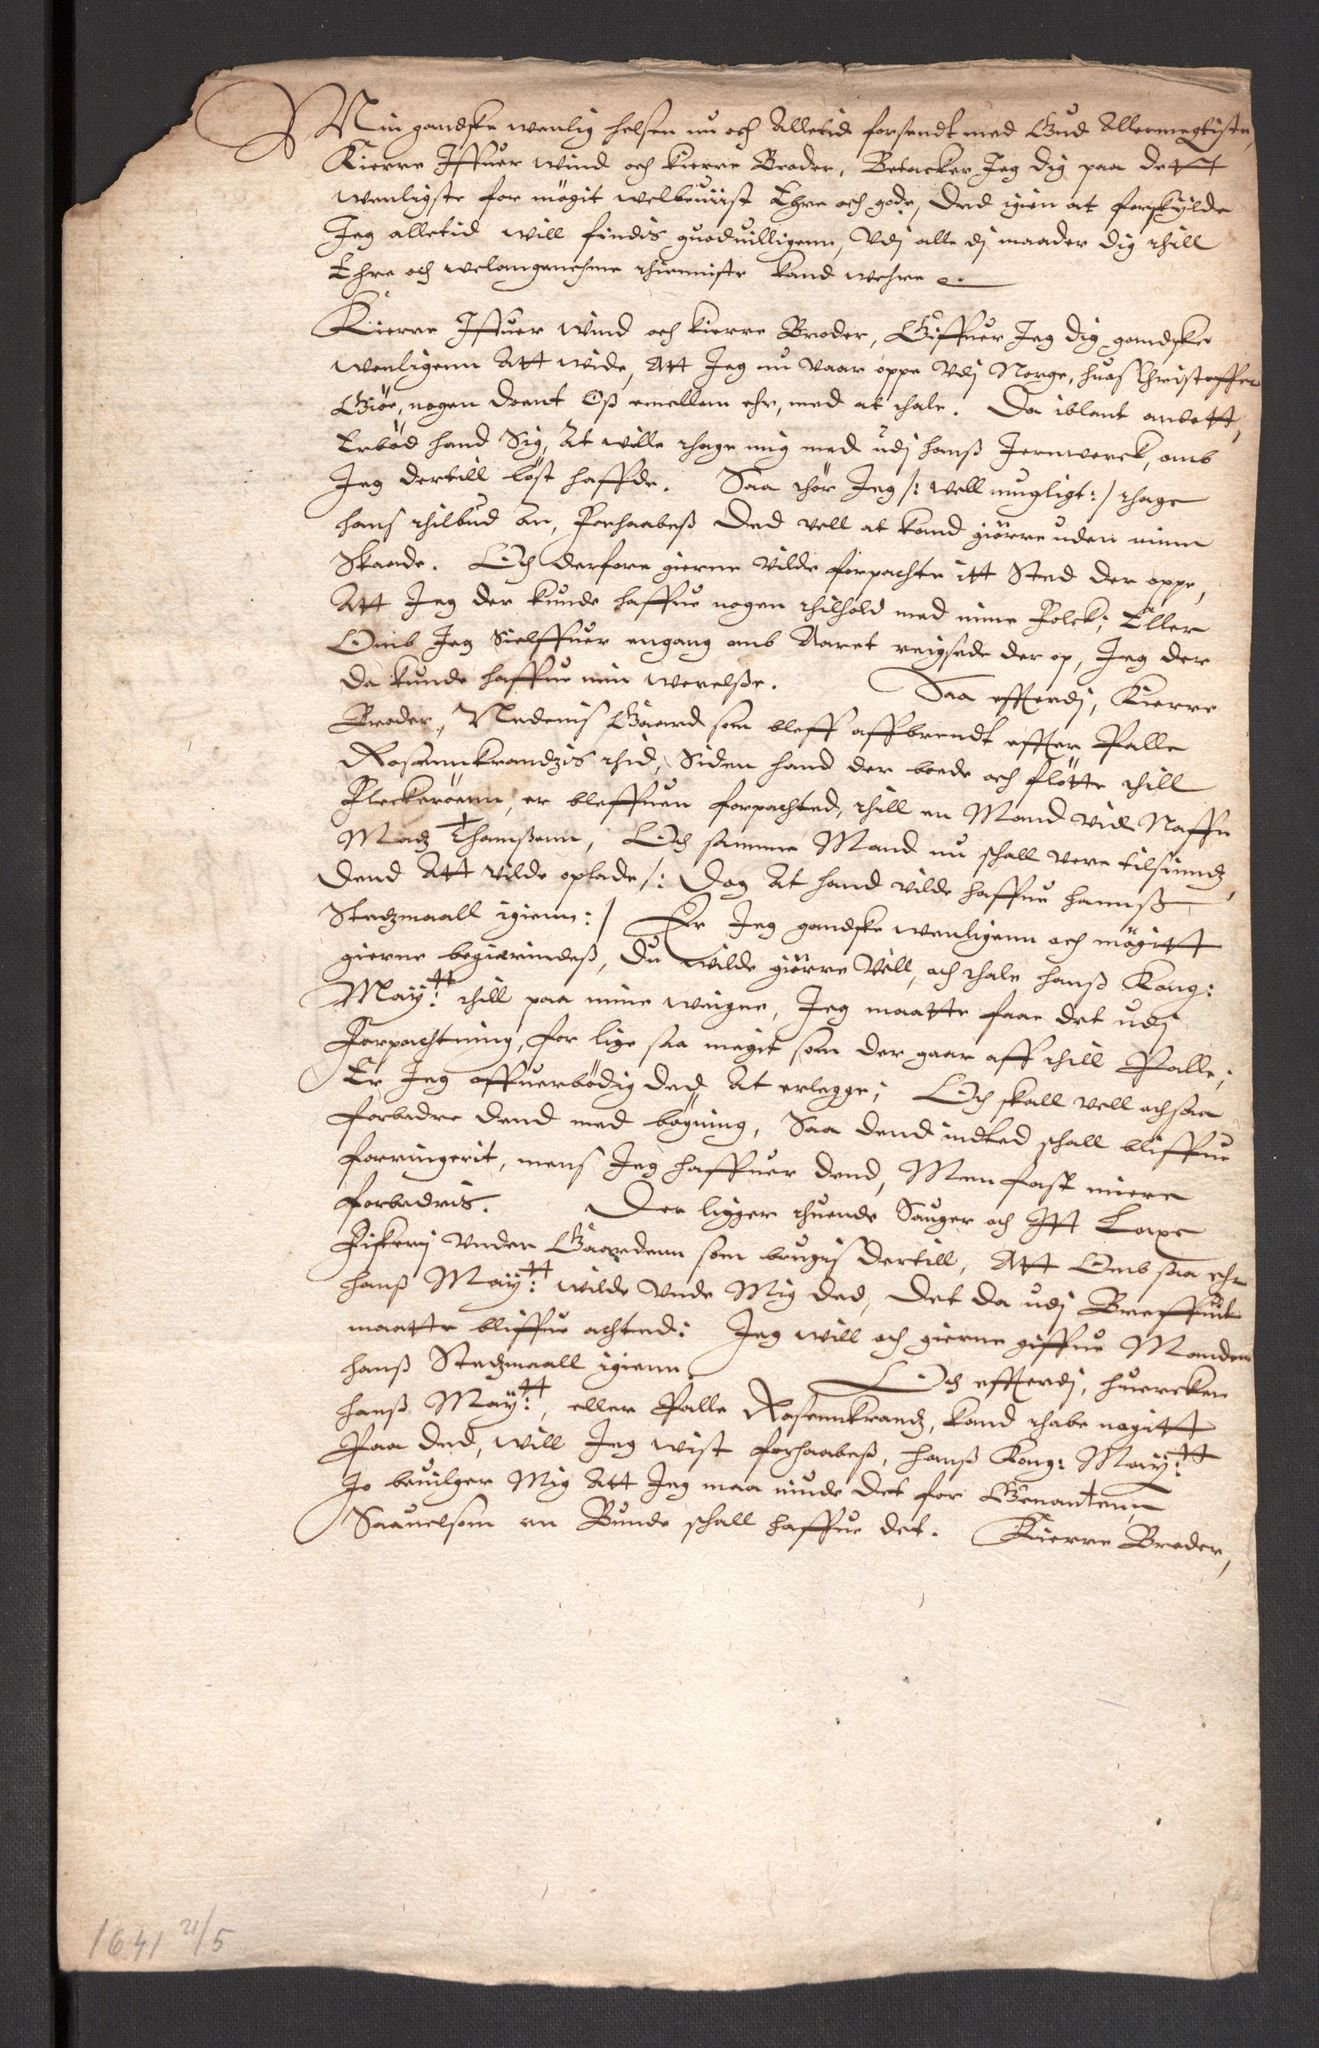 Min gandske wenlig helsen nu och Alletid forsendt med Gud Allermegtiste,
Kierre Iffuer Wind och kierre Broder, Betacker Jeg dig paa dett
wenligste for mögit welbeuist Ehre och gode, Ded igien at forskylde
Jeg alletid will findis guoduilligenn, Vdj alle dj maader dig thill
Ehre och welangenehme thienniste kand wehre
Kierre Iffuer Wind och kierre Broder, Giffuer Jeg dig gandske
wenligenn Att wide, Att Jeg nu vaar oppe Vdj Norge, huos Christoffer
Giöe, nogen doent Oß emellem ehr, med at thale. Da iblant andett,
Erböd hand Sig, At wille thage mig med udj hanß Jernwerck, omb
Jeg dertill löst haffde. Saa thör Jeg /: vell mugligt :/ thage
hans thilbud an, Forhaabeß Ded vell at kand giörre uden minn
Skaade. Och derfore gierne vilde forpachte itt Sted der oppe,
Att Jeg der kunde haffue nogen thilhold med mine Folck; Eller
Omb Jeg Sielffuer engang omb Aaret reigsede der op, Jeg der
da kunde haffue min werelße. Saa effterdj, Kierre
Broder, Nedenis Gaard som bleff affbrendt effter Palle
Rosennkrandzis thid, Siden hand der boede och flötte thill
Fleckeröenn, er bleffuen forpachted, thill en Mand vid Naffn
Madz Thamßenn, Och samme Mand nu schall vere tilsindz
Dend Att vilde oplade /: Dog At hand vilde haffue hannß
Stedzmaall igienn :/ Er Jeg gandske wenligenn och mögitt
gierne begierindeß, Du wilde giörre Vell, och thale hanß Kong:
Maytt: thill paa mine weigne, Jeg maatte faae det udj
Forpachtning, for lige saa megit som der gaar aff thill Palle;
Er Jeg offuerbödig Ded At erlegge; Och skall vell ochsaa
forbedre Dend med bögning, Saa dend indted schall bliffue
forringerit, mens Jeg haffuer dend, Men fast miere
forbedris. Der ligger thuende Sauger och Itt Laxe
Fiskerj Vnder Gaardenn som brugis dertill, Att Omb saa ehr
hanß Maytt: wilde Vnde Mig Ded, Det da udj Breffuit
maatte bliffue achted: Jeg will och gierne giffue Manden
hanß Stedzmaall igienn. Och effterdj, huercken
hanß Maytt:, eller Palle Rosennkrandz, kand thabe nogitt
Paa Ded, will Jeg wist forhaabeß, hanß Kong: Maytt:
Jo beuilger Mig Att Jeg maa niude det for Genantenn
Saauelsom en Bunde schall haffue det. Kierre Broder,
1641 21/5